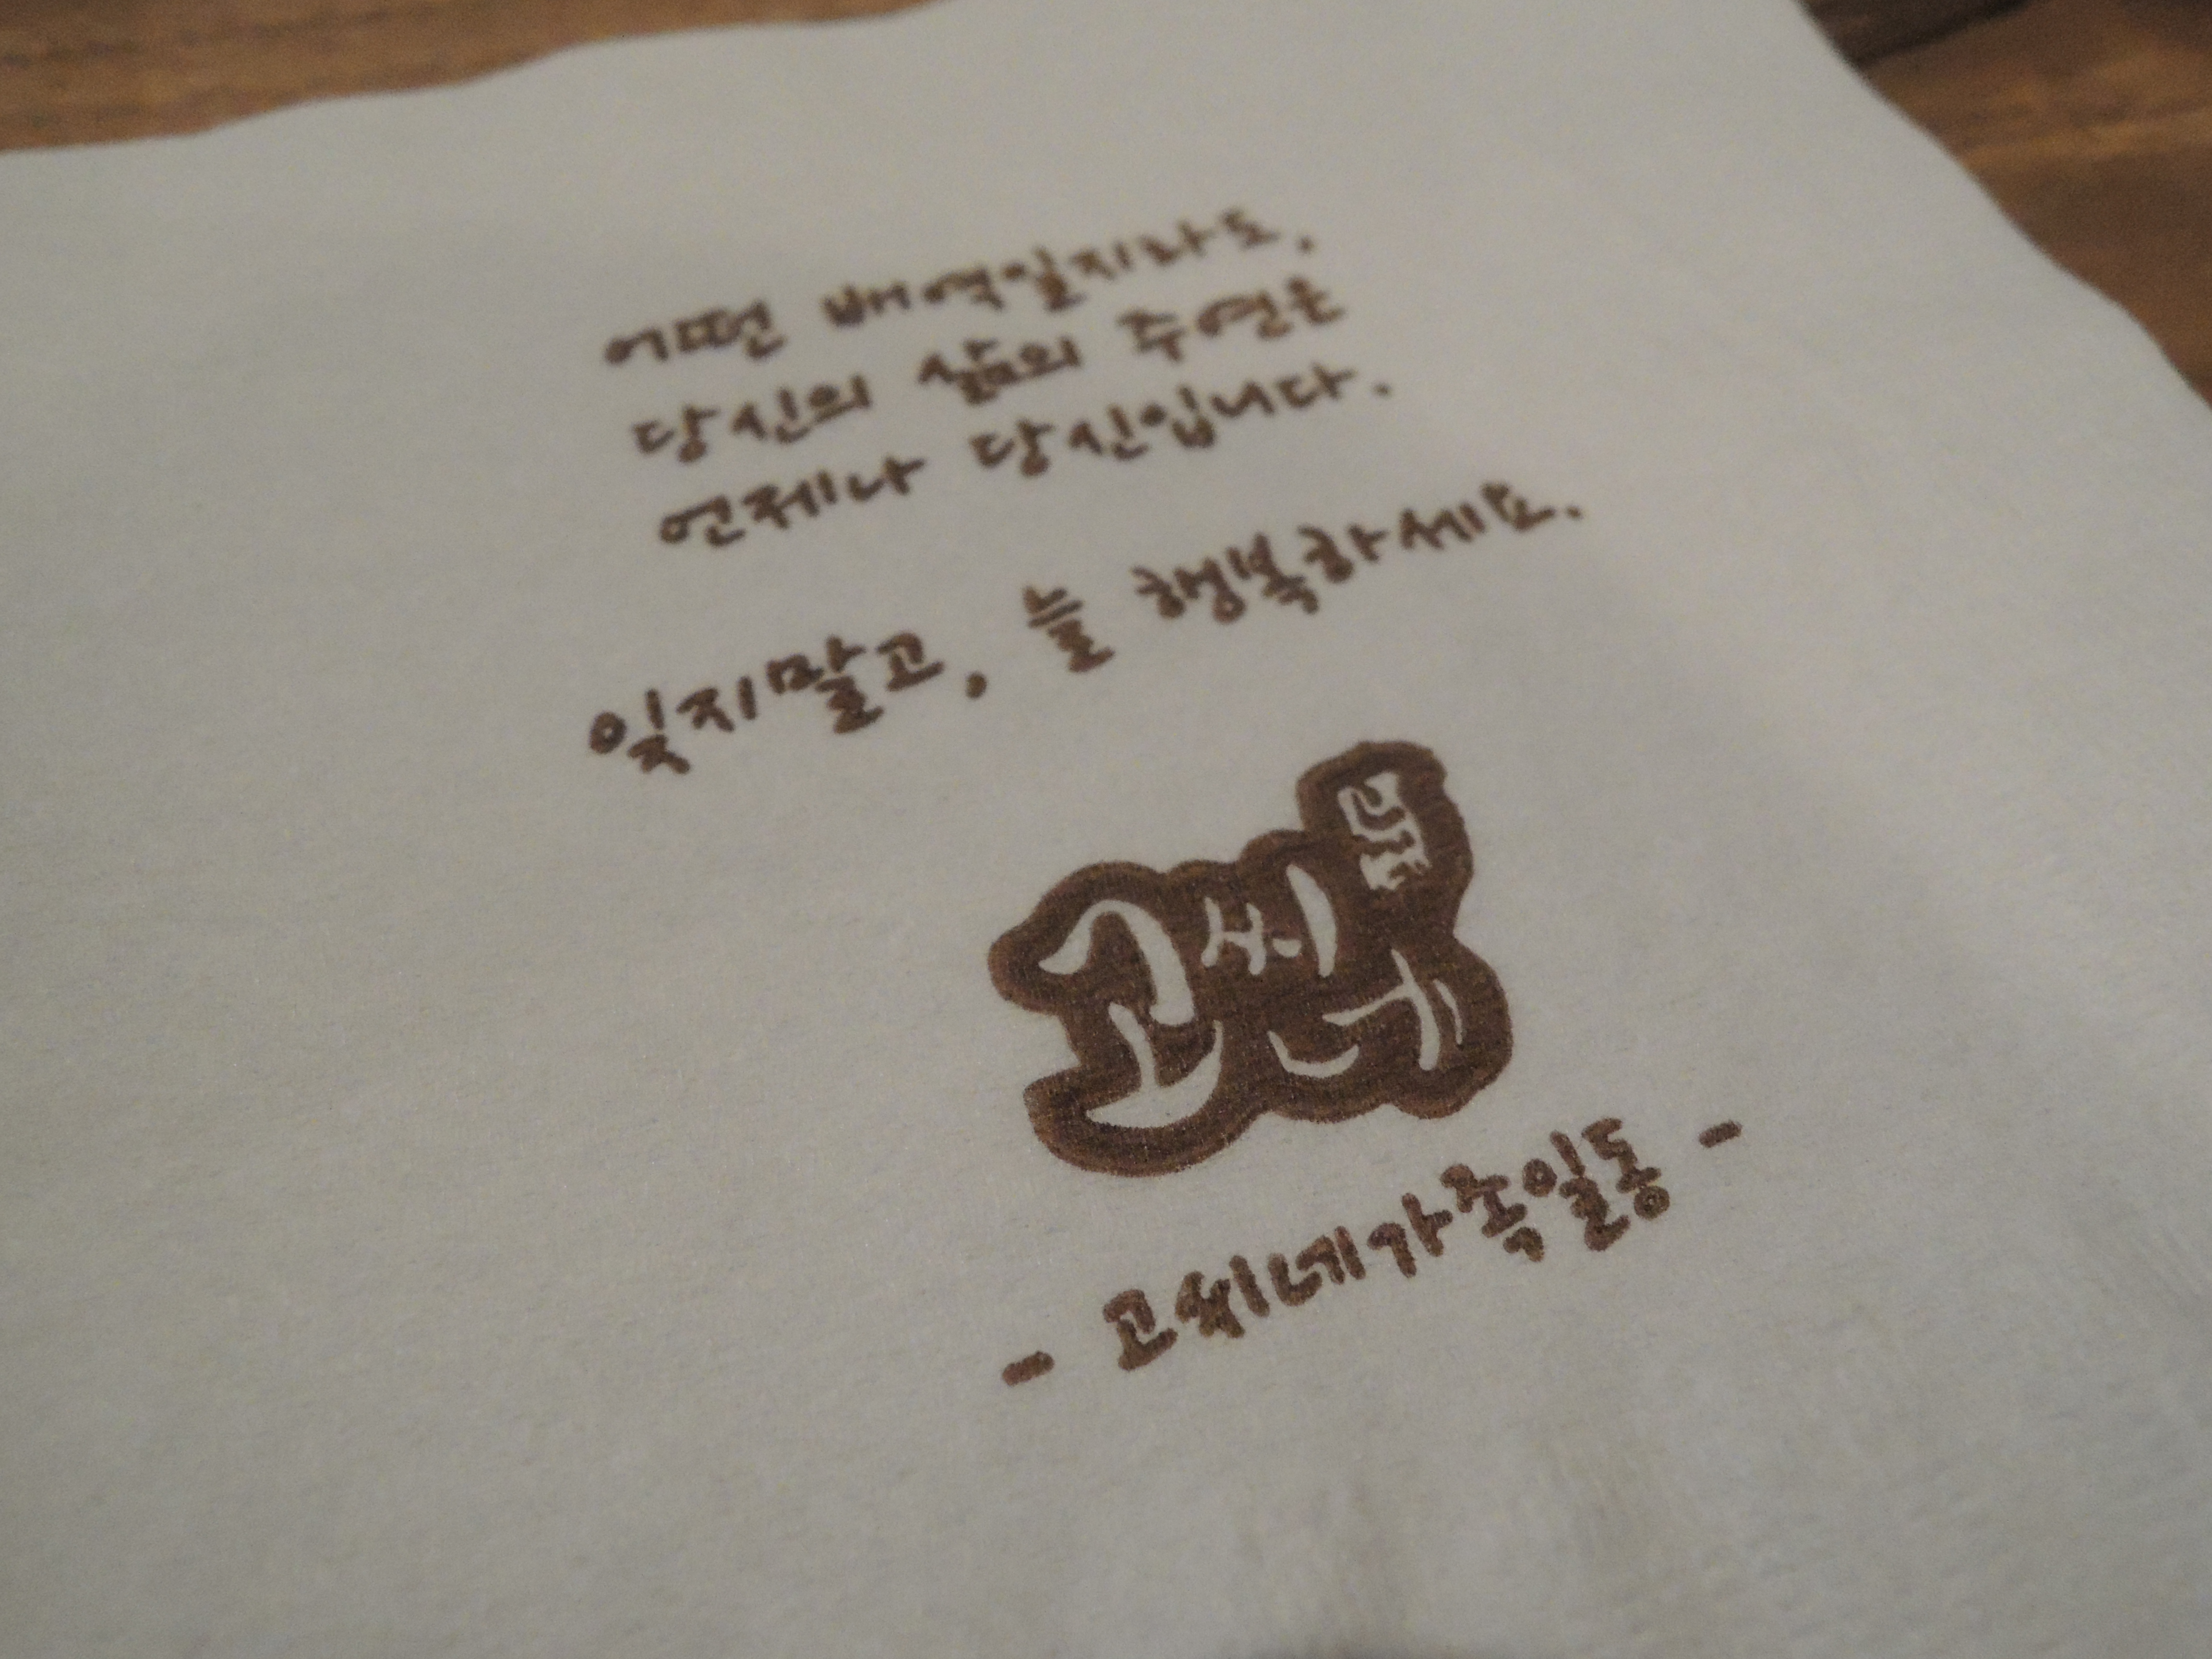 어떤 배역일지라도,
당신의 삶의 주연은
언제나 당신입니다.
잊지말고, 늘 행복하세요.
고씨네
- 고씨네가족일동 -